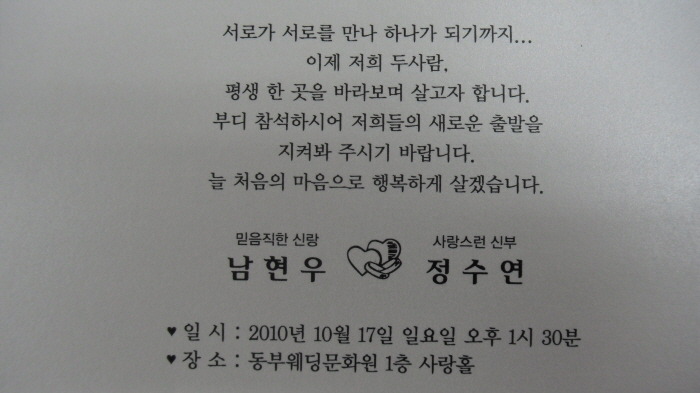 서로가 서로를 만나 하나가 되기까지...
이제 저희 두사람.
평생 한 곳을 바라보며 살고자 합니다.
부디 참석하시어 저희들의 새로운 출발을
지켜봐 주시기 바랍니다.
늘 처음의 마음으로 행복하게 살겠습니다.
믿음직한 신랑 사랑스런 신부
남현우 정수연
♥ 일 시 : 2010년 10월 17일 일요일 오후 1시 30분
♥ 장 소 : 동부웨딩문화원 1층 사랑홀